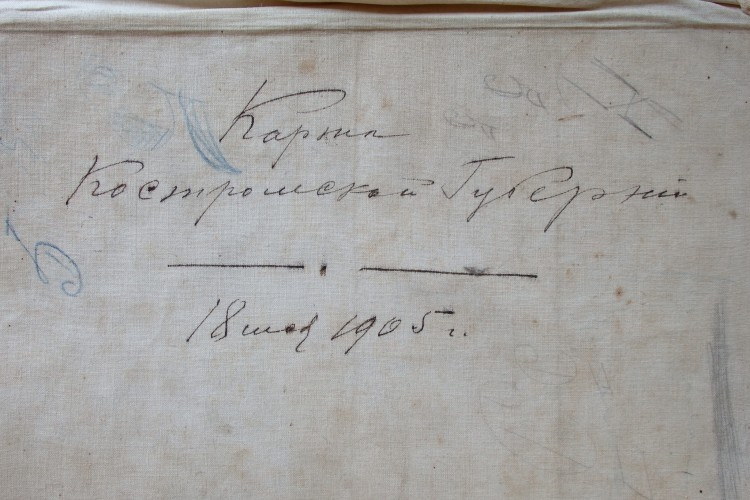 Карта
Костромской Губернии
18 мая 1905 г.